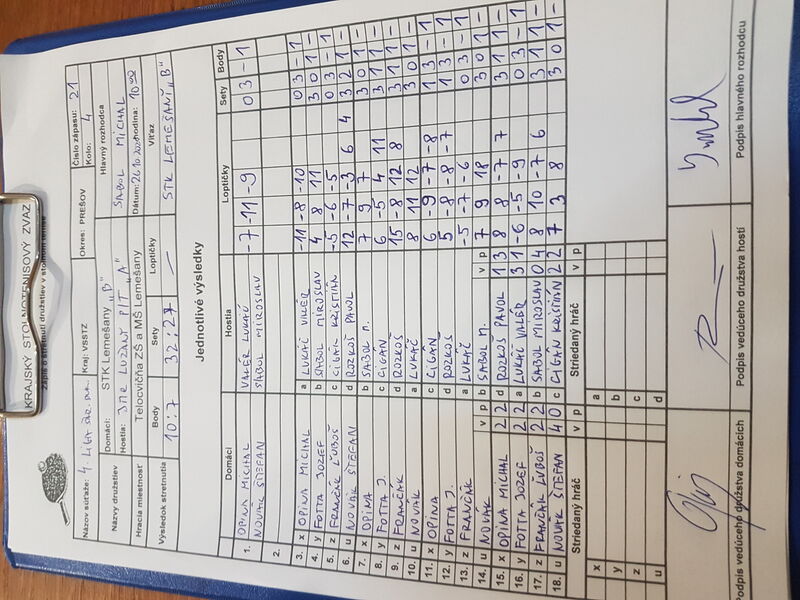 KRAJSKÝ STOLNOTENISOVÝ ZVÄZ
Zápis o stretnutí družstiev v stolnom tenise
Názov súťaže: 4. Liga Kraj: VSSTZ Okres: PREŠOV Číslo zápasu: 21
Názvy družstiev Domáci: STK Lemešany "B" Kolo: 4
Hostia: LUŽANY P/T "A" Hlavný rozhodca SABOL MICHAL
Hracia miestnosť Telocvičňa ZŠ a MŠ Lemešany Dátum: hodina: 10:00
Výsledok stretnutia Body Sety Loptičky Víťaz
10:7 32:27 — STK LEMEŠANY "B"
Jednotlivé výsledky
Domáci Hostia Loptičky Sety Body
1. OPINA MICHAL VALÉR LUKÁČ -7 -11 -9 0 3 - 1
NOVÁK ŠTEFAN SABOL MIROSLAV
2.
3. x OPINA MICHAL a LUKÁČ VALÉR -11 -8 -10 0 3 - 1
4. y FOTTA JOZEF b SABOL MIROSLAV 4 8 11 3 0 1 -
5. z FRANČÁK ĽUBOŠ c CIGÁN KRISTIÁN -5 -6 -5 0 3 - 1
6. u NOVÁK ŠTEFAN d ROZKOŠ PAVOL 12 -7 -3 6 4 3 2 1 -
7. x OPINA b SABOL M. 7 9 7 3 0 1 -
8. y FOTTA J. c CIGÁN 6 -5 4 11 3 1 1 -
9. z FRANČÁK d ROZKOŠ 15 -8 12 8 3 1 1 -
10. u NOVÁK a LUKÁČ 8 11 12 3 0 1 -
11. x OPINA c CIGÁN 6 -9 -7 -8 1 3 - 1
12. y FOTTA J. d ROZKOŠ 5 -8 -8 -7 1 3 - 1
13. z FRANČÁK a LUKÁČ -5 -7 -6 0 3 - 1
14. u NOVÁK v p b SABOL M. v p 7 9 18 3 0 1 -
15. x OPINA MICHAL 2 2 d ROZKOŠ PAVOL 1 3 8 8 -7 7 3 1 1 -
16. y FOTTA JOZEF 2 2 a LUKÁČ VALÉR 3 1 -6 -5 -9 0 3 - 1
17. z FRANČÁK ĽUBOŠ 2 2 b SABOL MIROSLAV 0 4 8 10 -7 6 3 1 1 -
18. u NOVÁK ŠTEFAN 4 0 c CIGÁN KRISTIÁN 2 2 7 3 8 3 0 1 -
Striedaný hráč v p Striedaný hráč v p
x a
y b
z c
u d
Podpis vedúceho družstva domácich Podpis vedúceho družstva hostí Podpis hlavného rozhodcu